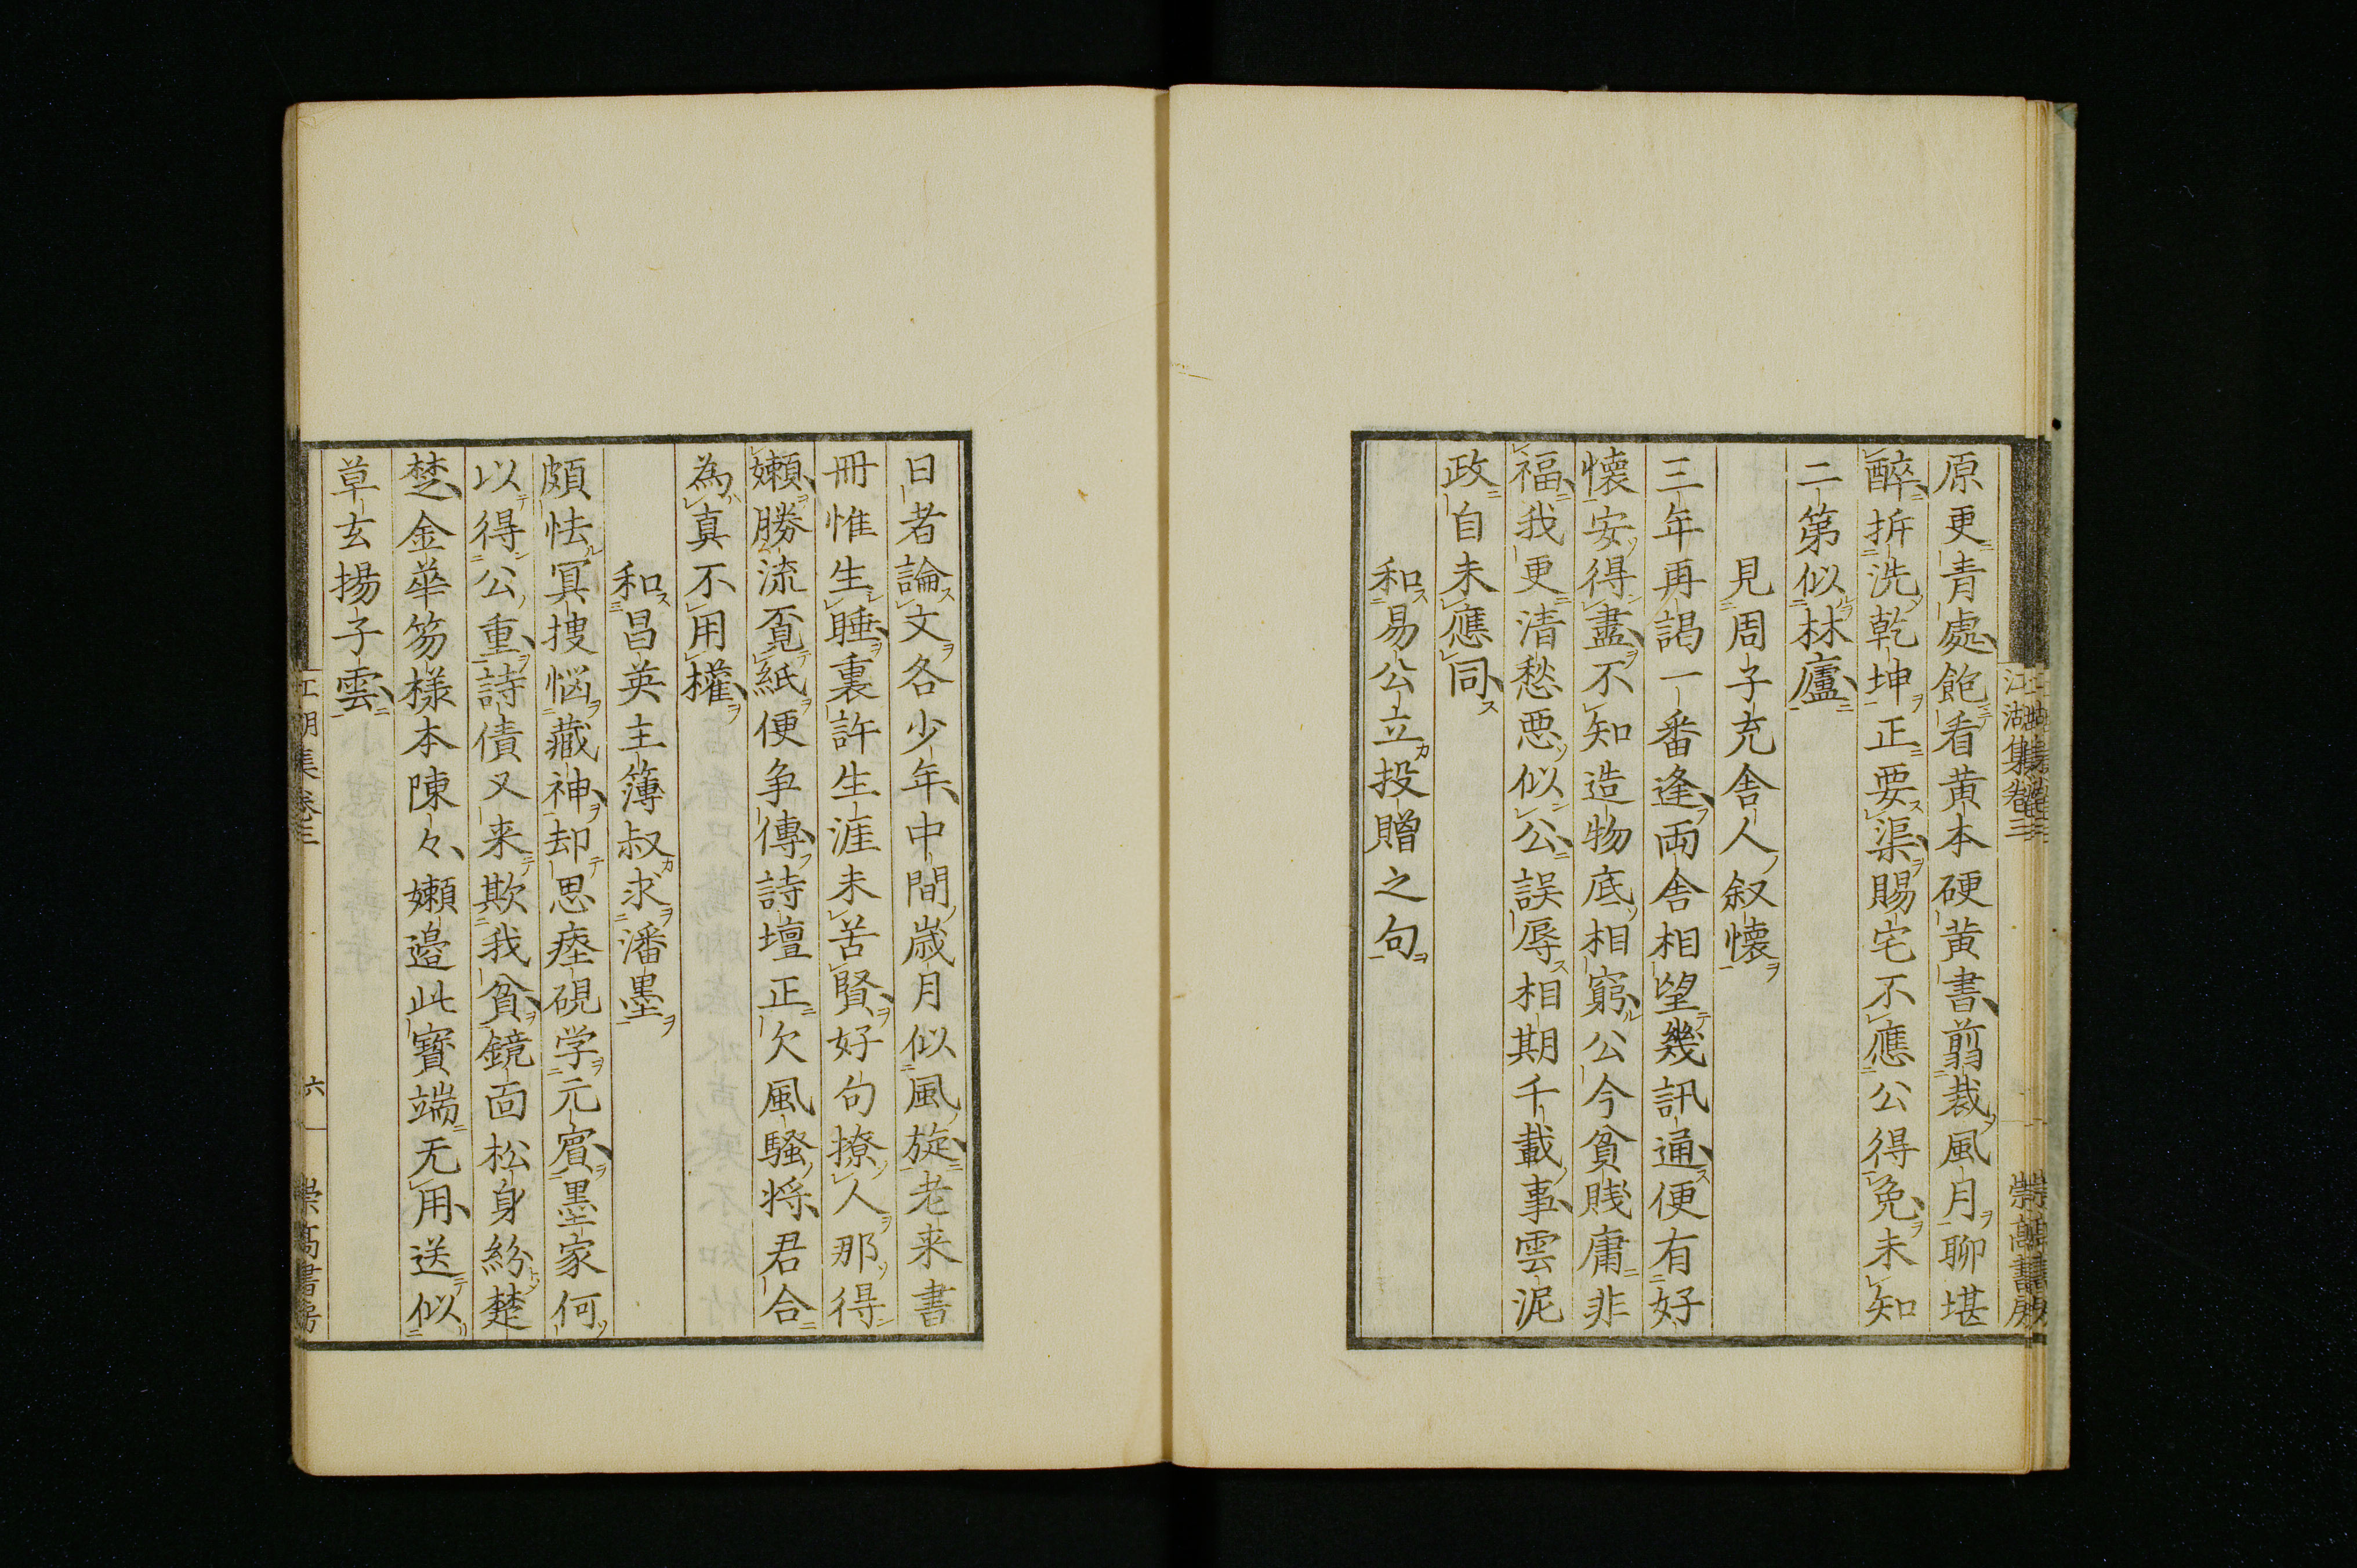 原更青處飽看黄本硬黄書翦裁風月聊堪
醉拆洗乾坤正要渠賜宅不應公得免未知
二第似林廬
見周子充舎人叙懐
三年再謁一番逢両舎相望幾訊通便有好
懐安得盡不知造物底相窮公今貧賎庸非
福我更清愁悪似公誤辱相期千載事雲泥
政自未應同
和易公立投贈之句
江湖集巻三
崇髙書房
日者論文各少年中間歳月似風旋老来書
冊惟生睡裏許生涯未苦賢好句撩人那得
嬾勝流覔紙便争傳詩壇正欠風騷将君合
為真不用權
和昌英主簿叔求潘墨
頗怯冥捜悩藏神却思瘞硯学元賔墨家何
以得公重詩債又来欺我貧鏡面松身紛楚
楚金華笏様本陳々嬾邉此寳端无用送似
草玄揚子雲
江湖集巻三
六
崇髙書房